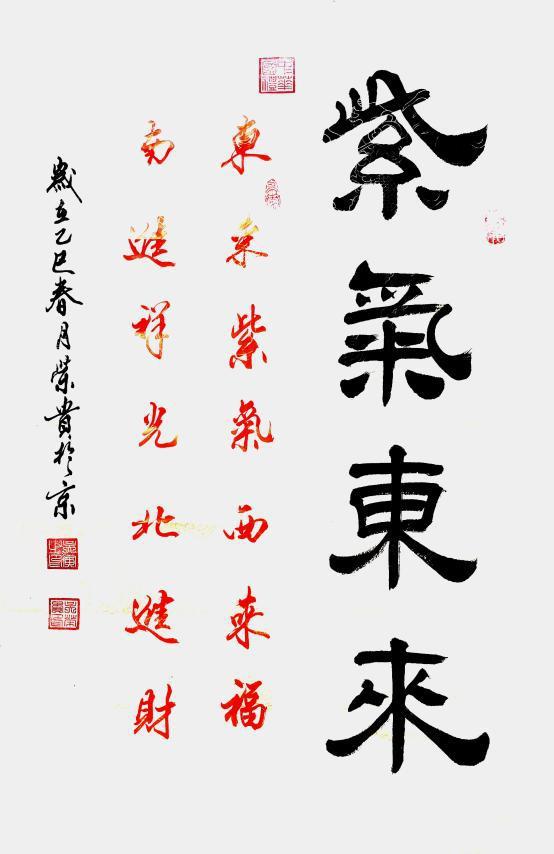 紫氣東來
東来紫氣西来福
南進祥光北進財
歲在乙巳春月榮貴於京